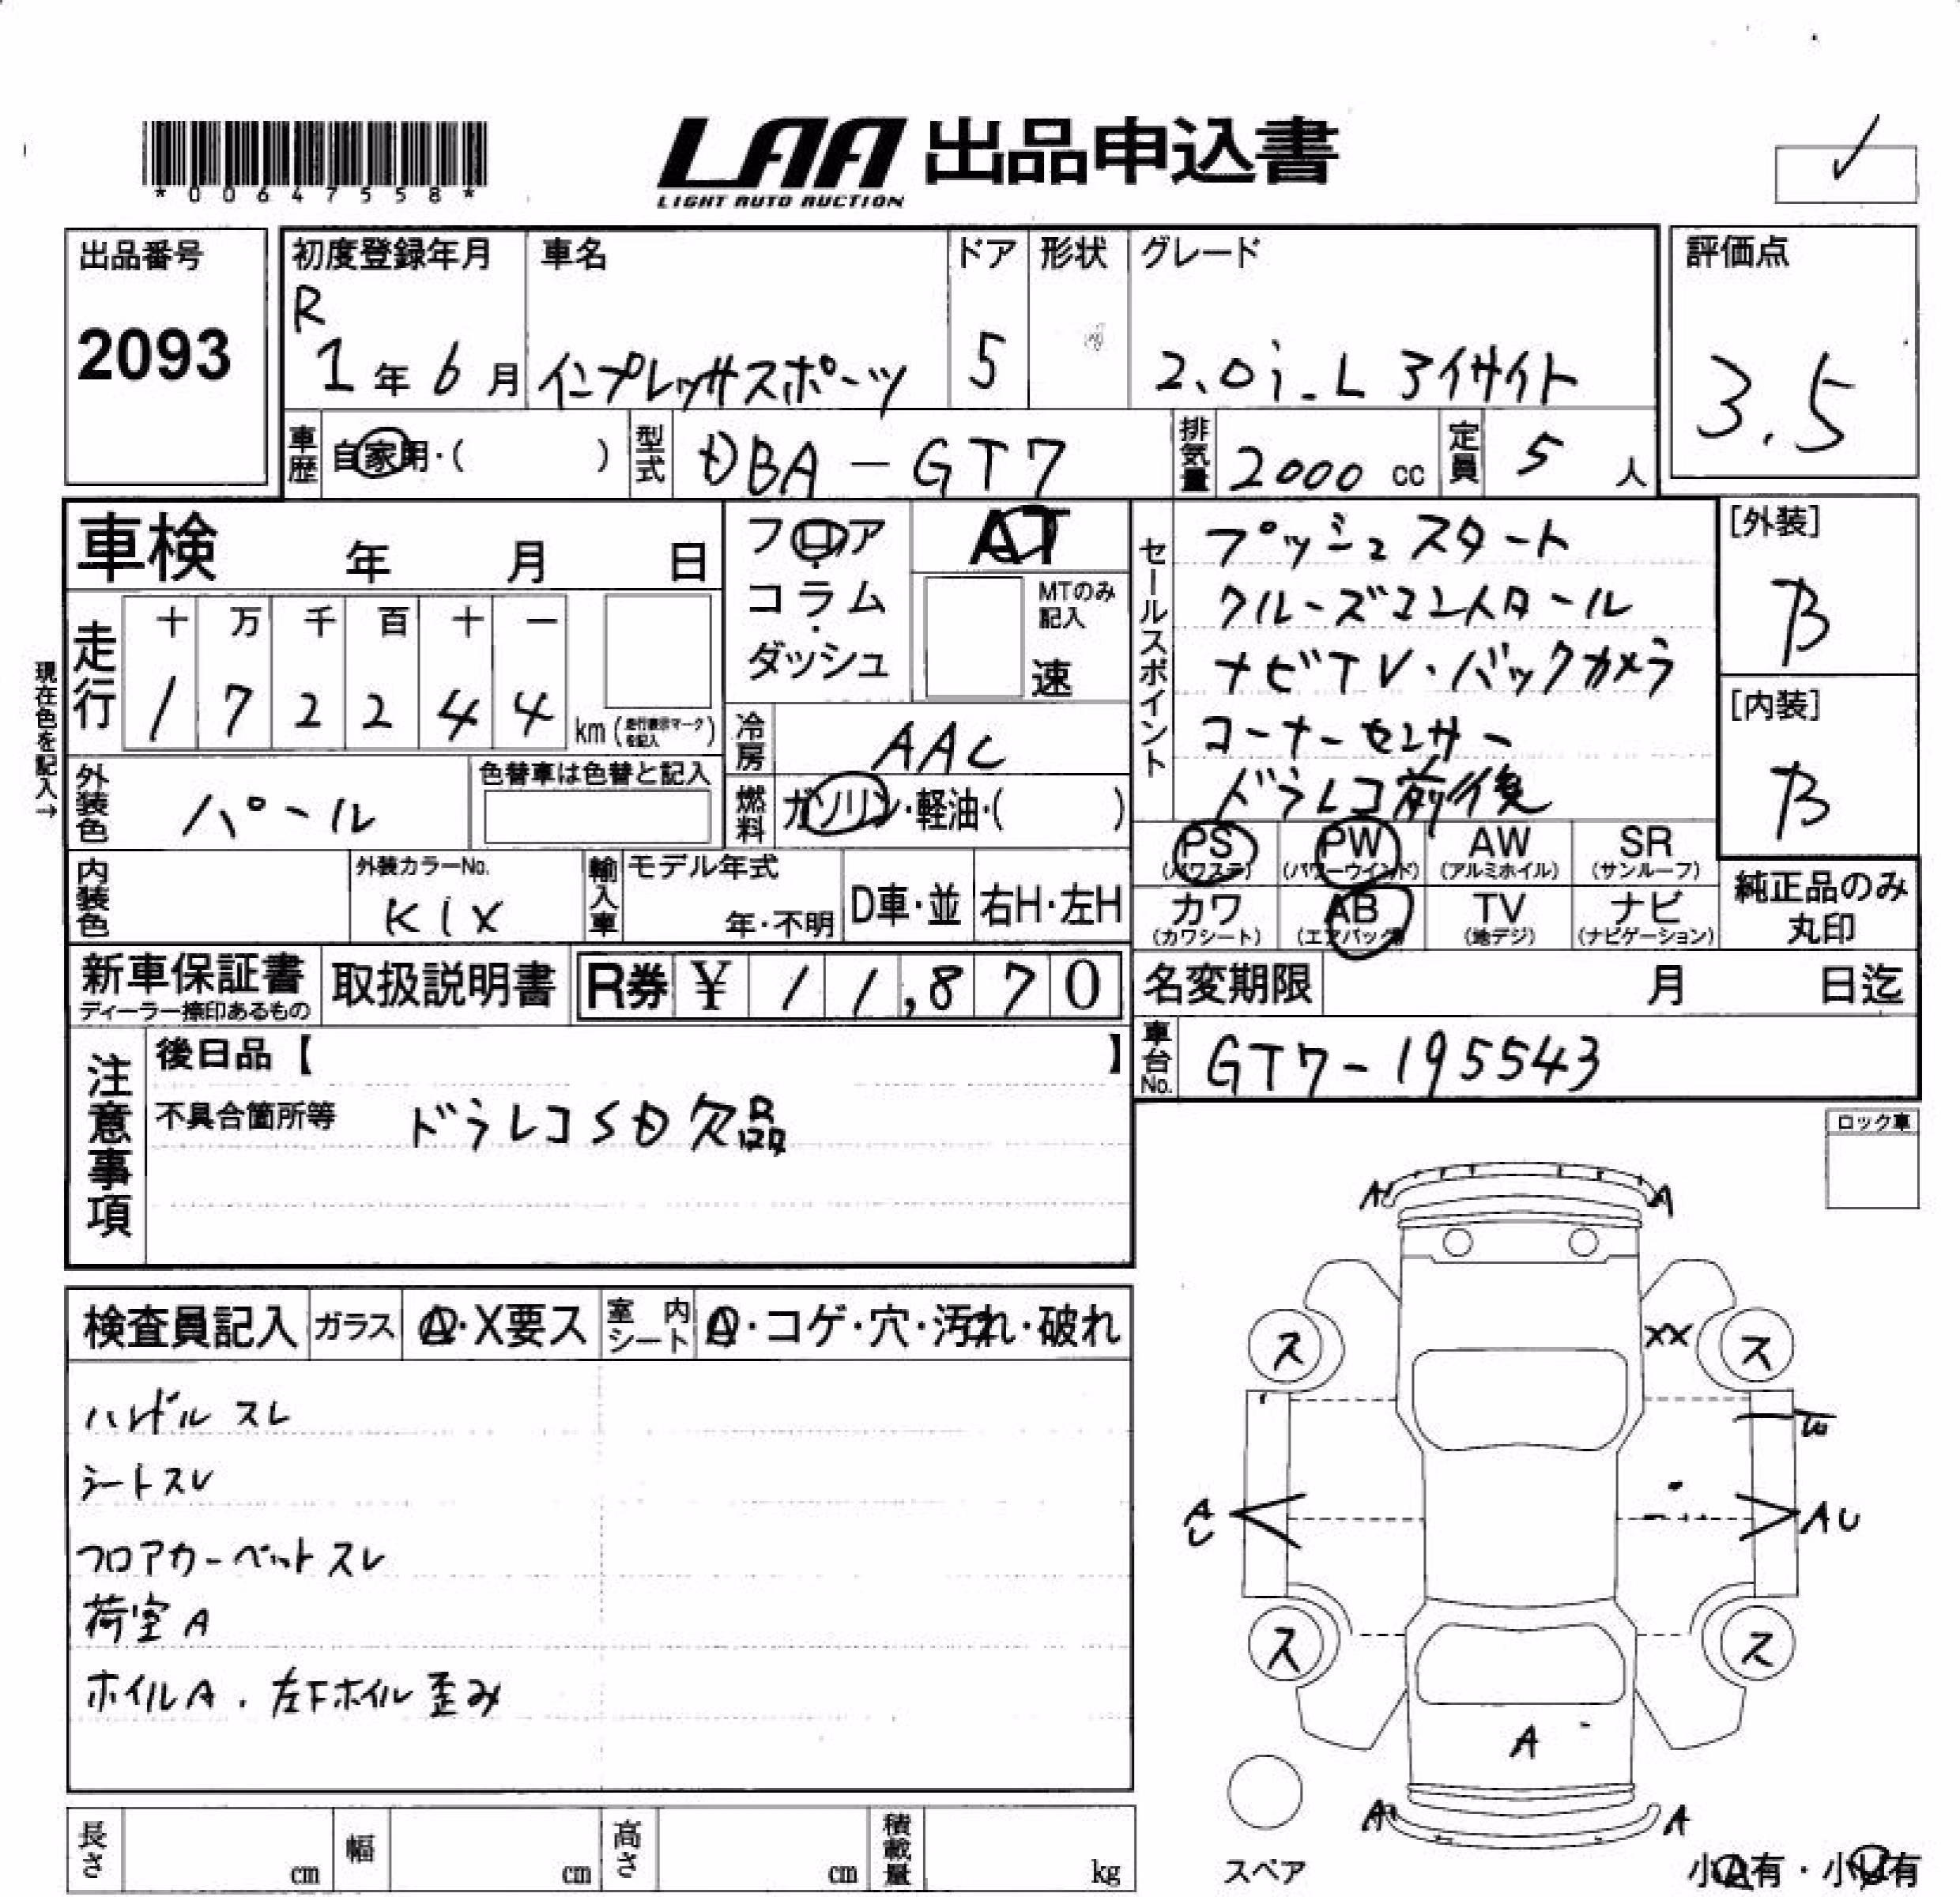 *00647558*
LAA 出品申込書
LIGHT AUTO AUCTION
✓
出品番号
2093
初度登録年月
R
1年6月
車名
インプレッサスポーツ
ドア
5
形状
グレード
2.0i-L アイサイト
評価点
3.5
車歴
自家用・( )
型式
DBA-GT7
排気量
2000 cc
定員
5 人
車検 年 月 日
フロア
コラム
ダッシュ
AT
MTのみ記入
速
走行
十 万 千 百 十 一
1 7 2 2 4 4
km (走行表示マークを記入)
現在色を記入→
冷房
AAC
燃料
ガソリン・軽油・( )
外装色
パール
色替車は色替と記入
内装色
外装カラーNo.
K1X
輸入車
モデル年式
年・不明
D車・並
右H・左H
セールスポイント
プッシュスタート
クルーズコントロール
ナビTV・バックカメラ
コーナーセンサー
ドラレコ前後
[外装]
B
[内装]
B
PS (パワステ)
PW (パワーウインド)
AW (アルミホイル)
SR (サンルーフ)
カワ (カワシート)
AB (エアバック)
TV (地デジ)
ナビ (ナビゲーション)
純正品のみ
丸印
新車保証書
ディーラー捺印あるもの
取扱説明書
R券 ¥ 11,870
名変期限 月 日迄
車台No.
GT7-195543
注意事項
後日品【 】
不具合箇所等
ドラレコSD欠品
ロック車
検査員記入
ガラス
A・X要ス
室内シート
A・コゲ・穴・汚れ・破れ
ハンドルスレ
シートスレ
フロアカーペットスレ
荷室A
ホイルA.左Fホイル歪み
A A
ス XX ス
W
AU AU
ス ス
A
A A
スペア
小A有・小U有
長さ cm
幅 cm
高さ cm
積載量 kg